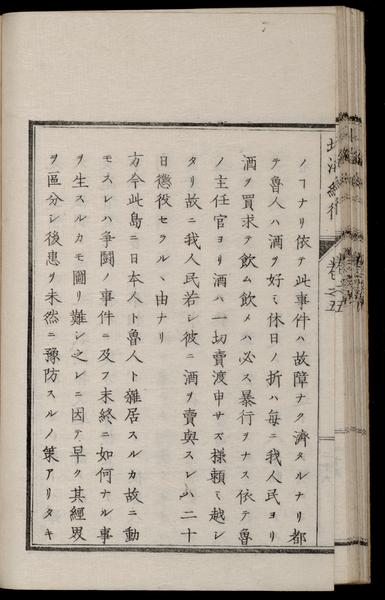 ノヿナリ依テ此事件ハ故障ナク濟タルナリ都
テ魯人ハ酒ヲ好ミ休日ノ折ハ毎ニ我人民ヨリ
酒ヲ買求テ飲ム飲メハ必ス暴行ヲナス依テ魯
ノ主任官ヨリ酒ハ一切賣渡申サス様頼ミ越シ
タリ故ニ我人民若シ彼ニ酒ヲ賣與スレハ二十
日懲役セラルヽ由ナリ
方今此島ニ日本人ト魯人ト雜居スルカ故ニ動
モスレハ争鬪ノ事件ニ及フ末終ニ如何ナル事
ヲ生スルカモ圖リ難シ之レニ因テ早ク其經界
ヲ區分シ後患ヲ未然ニ豫防スルノ策アリタキ
卷之五